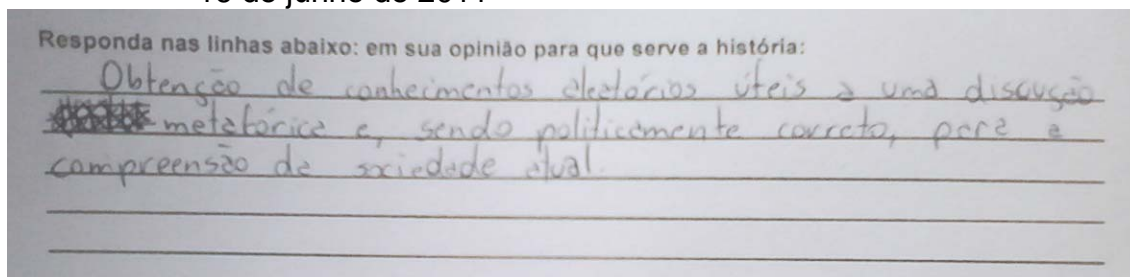 Responda nas linhas abaixo: em sua opinião para que serve a história:
Obtenção de conhecimentos aleatórios úteis a uma discução
metafórica e, sendo politicamente correto, para a
compreensão da sociedade atual.